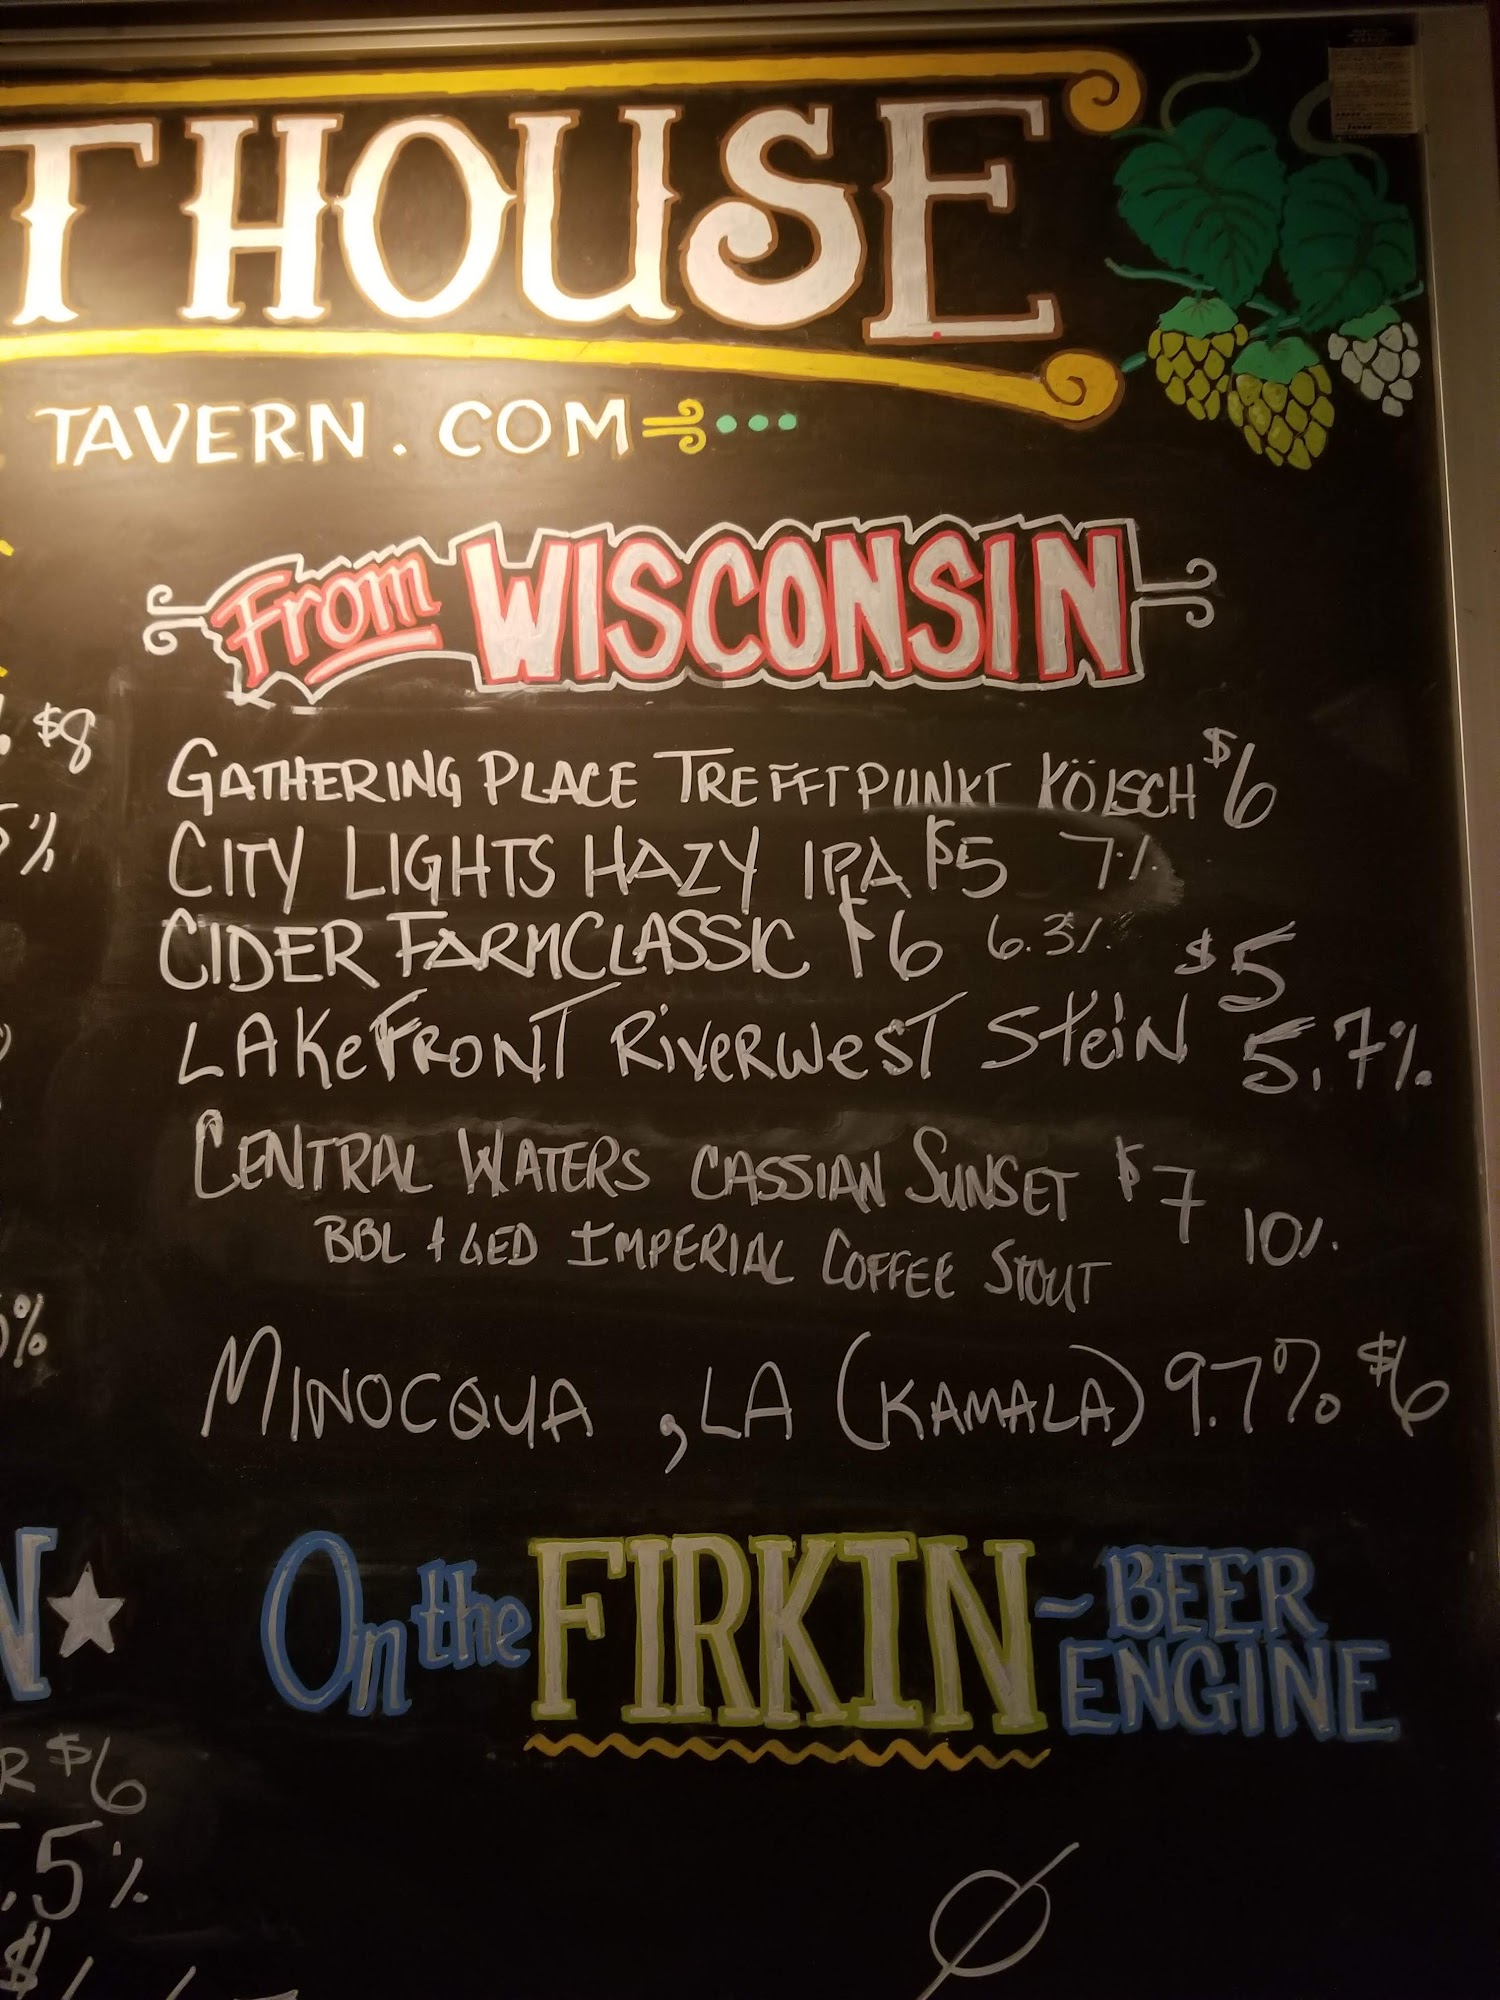 T HOUSE
TAVERN.COM
From WISCONSIN
$8
GATHERING PLACE TREFFTPUNKT KÖLSCH $6
5%
CITY LIGHTS HAZY IPA $5 7%
CIDER FARM CLASSIC $6 6.3%
LAKEFRONT RIVERWEST STEIN $5
5.7%
CENTRAL WATERS CASSIAN SUNSET $7
BBL AGED IMPERIAL COFFEE STOUT 10%
%
MINOCQUA , LA (KAMALA) 9.7% $6
N
On the FIRKIN ~ BEER
ENGINE
R $6
.5%
$